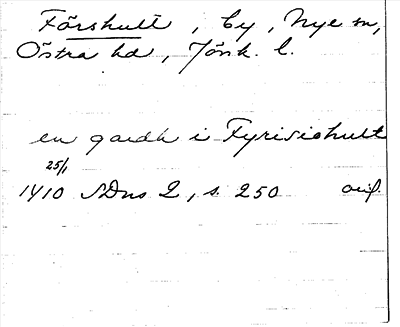 Förshult, by, Nye sn,
Östra hd, Jönk. l.
en gardh i Fyrisiohult
25/1
1410 SDns 2, s. 250 orif.